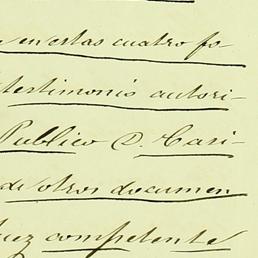 en estas cuatro fo-
testimonio autori-
Publico D. Casi-
de otros documen
uez competente